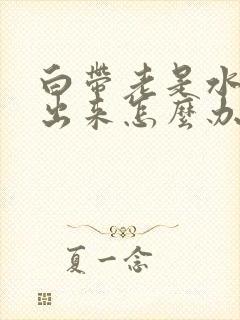 白帶老是水
出来怎麼办
夏一念